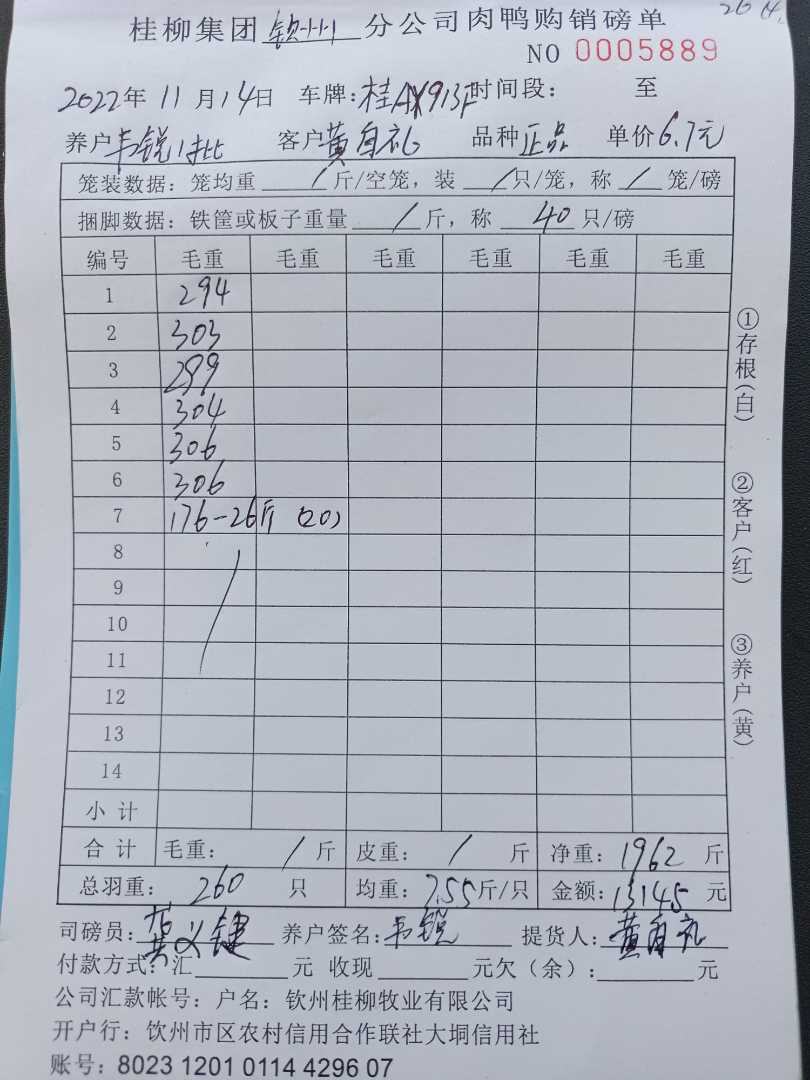 桂柳集团钦州分公司肉鸭购销磅单
NO 0005889
2022年11月14日 车牌:桂AX913F时间段: 至
养户韦锐1批 客户黄自礼 品种正品 单价6.7元
笼装数据:笼均重/斤/空笼,装/只/笼,称/笼/磅
捆脚数据:铁筐或板子重量/斤,称40只/磅
编号 毛重 毛重 毛重 毛重 毛重 毛重
1 294
2 303
3 299
4 304
5 306
6 306
7 176-26斤 (20)
8
9
10
11
12
13
14
小计
合计 毛重: / 斤 皮重: / 斤 净重: 1962 斤
总羽重: 260 只 均重: 7.55斤/只 金额: 13145 元
司磅员: 黄义键 养户签名: 韦锐 提货人: 黄自礼
付款方式:汇 元 收现 元欠(余): 元
公司汇款帐号:户名:钦州桂柳牧业有限公司
开户行:钦州市区农村信用合作联社大垌信用社
账号:8023 1201 0114 4296 07
①存根(白)
②客户(红)
③养户(黄)